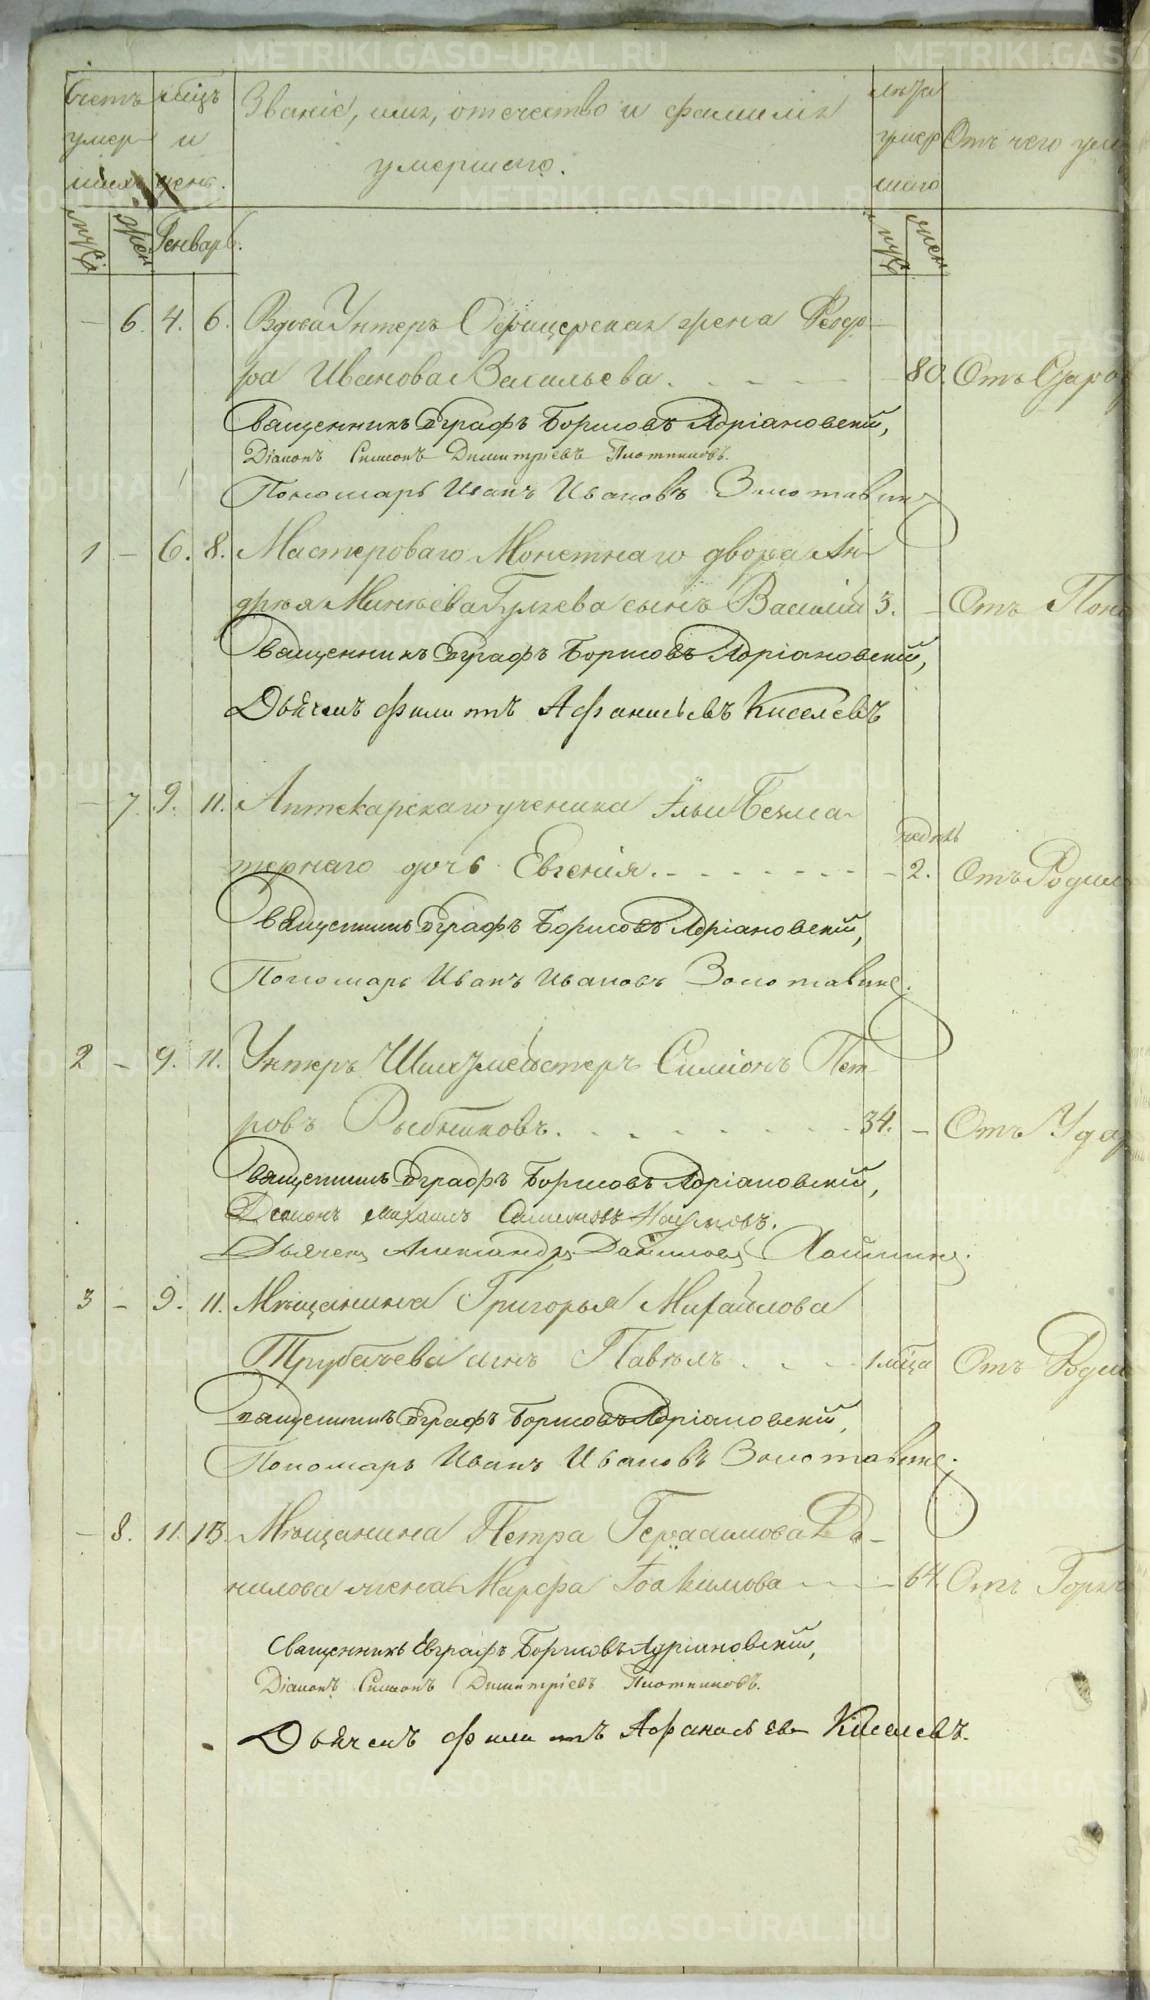 METRIKI.GASO-URAL.RU
Счетъ умершихъ
Мѣсяцъ и день.
Званіе, имя, отечество и фамилія умершаго.
Лѣта умершаго
Отъ чего
муж
жен
Генварь.
муж
жен
— 6. 4. 6. Вдова Унтеръ Офицерская жена Федо-
ра Иванова Васильева. — 80.
Священникъ Евграфъ Борисовъ Адріановскій,
Діаконъ Симеонъ Димитріевъ Плотниковъ.
Пономарь Иванъ Ивановъ Золотавинъ
1 — 6. 8. Мастероваго Монетнаго двора Ан-
дрея Минѣева Гуляева сынъ Василій 3. — Отъ
Священникъ Евграфъ Борисовъ Адріановскій,
Дьячекъ Филитъ Афанасьевъ Киселевъ
— 7. 9. 11. Аптекарскаго ученика Ильи Безма-
недѣль
тернаго дочь Евгенія. — 2. Отъ
Священникъ Евграфъ Борисовъ Адріановскій,
Пономарь Иванъ Ивановъ Золотавинъ.
2 — 9. 11. Унтеръ Шихтмейстеръ Симіонъ Пет-
ровъ Рыбниковъ. 34. — Отъ
Священникъ Евграфъ Борисовъ Адріановскій,
Діаконъ Михаилъ Симеоновъ Наумовъ.
Дьячекъ Александръ Даниловъ
3 — 9. 11. Мѣщанина Григорья Михайлова
Трубачева сынъ Павелъ 1 мѣсяца Отъ
Священникъ Евграфъ Борисовъ Адріановскій,
Пономарь Иванъ Ивановъ Золотавинъ.
— 8. 11. 13. Мѣщанина Петра Герасимова Да-
нилова жена Марфа Іоакимова — 64. Отъ
Священникъ Евграфъ Борисовъ Адріановскій,
Діаконъ Симеонъ Димитріевъ Плотниковъ.
Дьячекъ Филитъ Афанасьевъ Киселевъ.